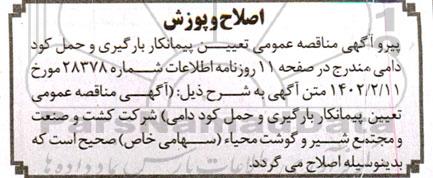 اصلاح و پوزش
پیرو آگهی مناقصه عمومی تعییـن پیمانکار بارگیری و حمل کود
دامی مندرج در صفحه ۱۱ روزنامه اطلاعات شماره ۲۸۳۷۸ مورخ
۱۴۰۲/۲/۱۱ متن آگهی به شـرح ذیل: (آگهـی مناقصه عمومی
تعیین پیمانکار بارگیری و حمل کود دامی) شرکت کشت و صنعت
و مجتمع شـیر و گوشت محیاء (سـهامی خاص) صحیح است که
بدینوسیله اصلاح می گردد.
ParsNamadData